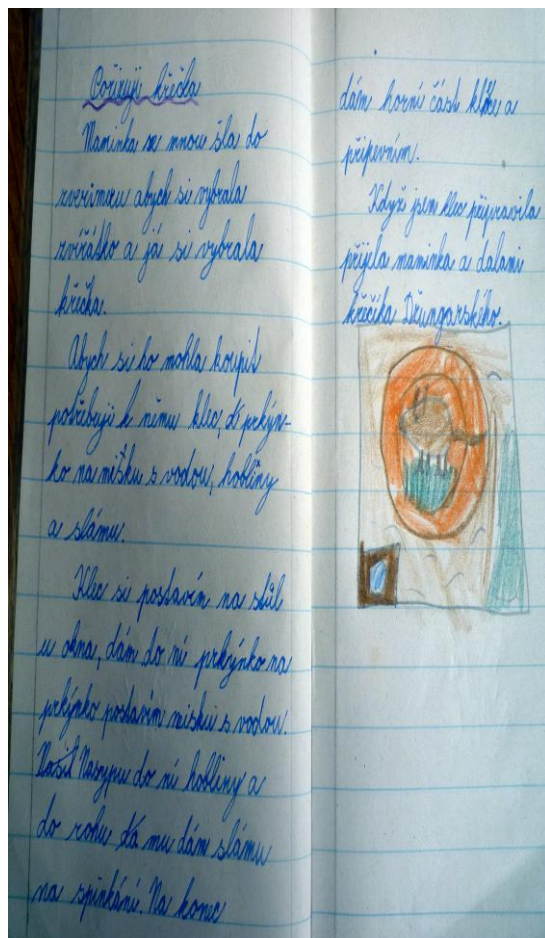 Pořizuji křečka
Maminka se mnou šla do
zverimexu abych si vybrala
zvířátko a já si vybrala
křečka.
Abych si ho mohla koupit
potřebuji k němu klec, prkýn-
ko na mišku s vodou, hobliny
a slámu.
Klec si postavím na stůl
u okna, dám do ní prkýnko na
prkýnko postavím misku s vodou.
Nasypu do ní hobliny a
do rohu mu dám slámu
na spinkání. Na konec
dám horní část klece a
připevním.
Když jsem klec připravila
přijela maminka a dalami
křečíka Džungarského.